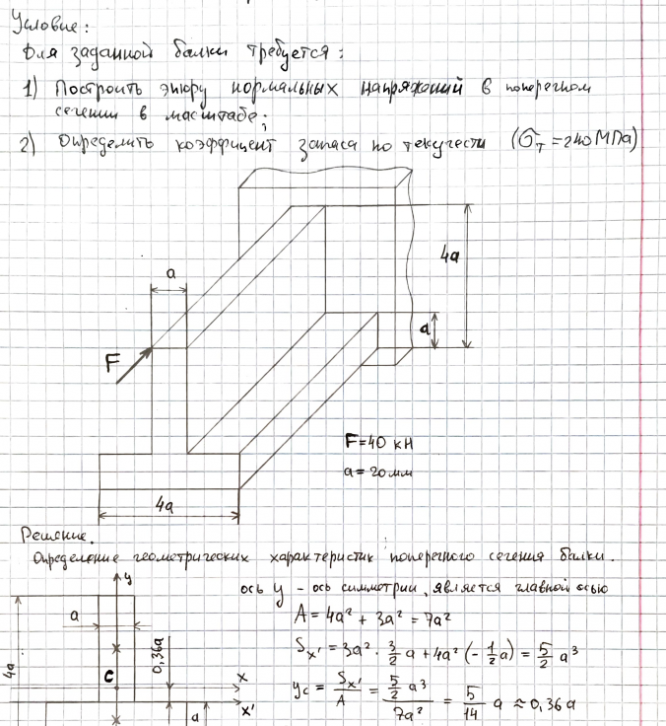 Условие:
Для заданной балки требуется:
1) Построить эпюру нормальных напряжений в поперечном
сечении в масштабе;
2) Определить коэффициент запаса по текучести (σт = 240 МПа)
4a
a
a
F
F=40 кН
a=20мм
4a
Решение.
Определение геометрических характеристик поперечного сечения балки.
y
ось y - ось симметрии, является главной осью
a
A = 4a² + 3a² = 7a²
4a
0,36a
Sx' = 3a² · 3/2 a + 4a² (- 1/2 a) = 5/2 a³
C
x
x'
yc = Sx'/A = 5/2 a³ / 7a² = 5/14 a ≈ 0,36a
a